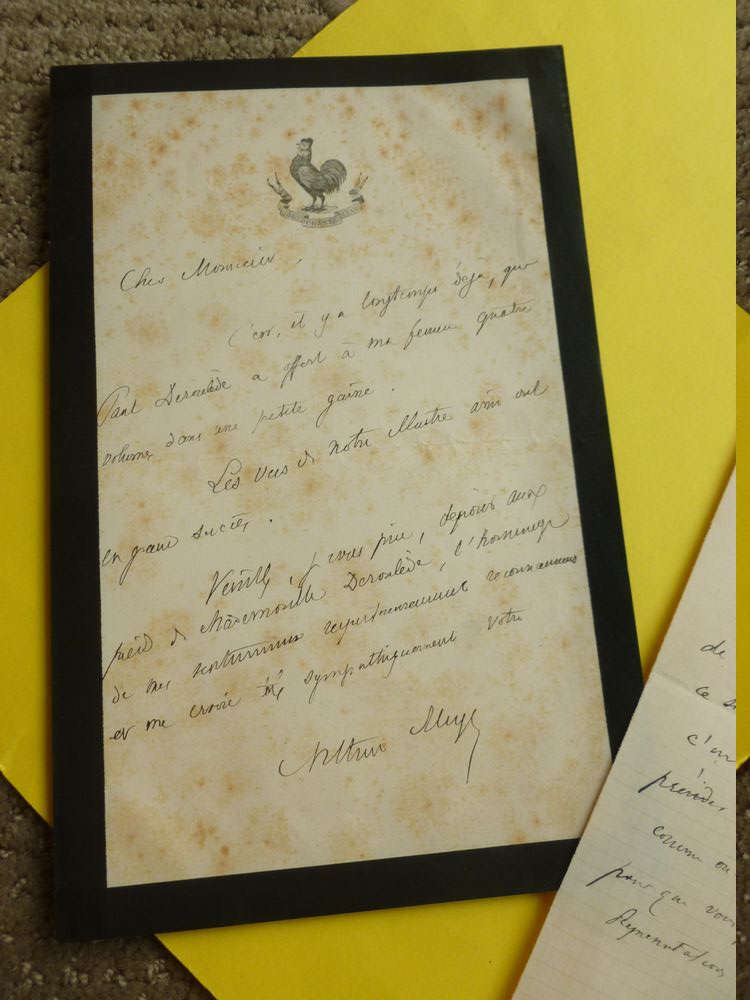 Cher Monsieur,
C'est, il y a longtemps déjà, que
Paul Deroulède a offert à ma femme quatre
volumes dans une petite gaine.
Les vers de notre illustre ami ont
un grand succès.
Veuillez, je vous prie, déposer aux
pieds de Mademoiselle Deroulède, l'hommage
de mes sentiments respectueusement reconnaissants
et me croire très sympathiquement votre
Arthur Meyer
de
ce
c'
comme on
pour que vous
Représentations